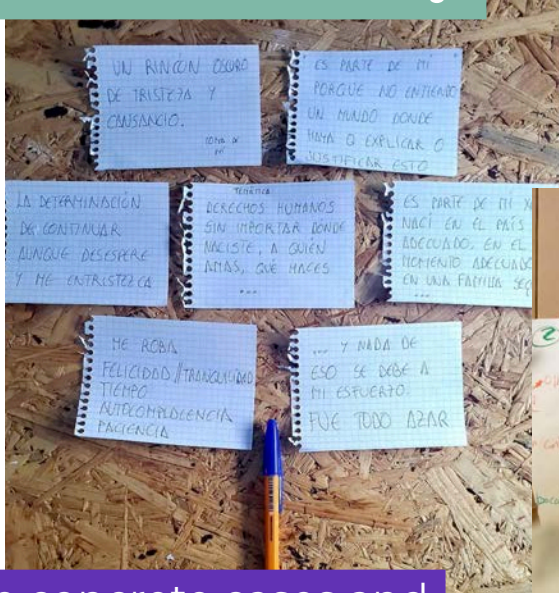 UN RINCÓN OSCURO
DE TRISTEZA Y
CANSANCIO.
ES PARTE DE MÍ
PORQUE NO ENTIENDO
UN MUNDO DONDE
HAYA Q EXPLICAR O
JUSTIFICAR ESTO
LA DETERMINACIÓN
DE CONTINUAR
AUNQUE DESESPERE
Y ME ENTRISTEZCA
TEMÁTICA
DERECHOS HUMANOS
SIN IMPORTAR DÓNDE
NACISTE, A QUIÉN
AMAS, QUÉ HACES
...
ES PARTE DE MI X
NACÍ EN EL PAÍS
ADECUADO, EN EL
MOMENTO ADECUADO
EN UNA FAMILIA
...
ME ROBA
FELICIDAD//TRANQUILIDAD
TIEMPO
AUTOCOMPLACENCIA
PACIENCIA
... Y NADA DE
ESO SE DEBE A
MI ESFUERZO.
FUE TODO AZAR
2
concrete cases and